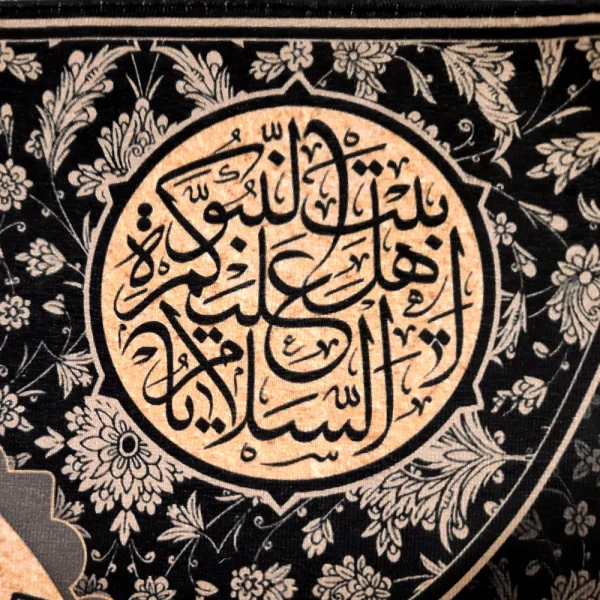 السلام عليكم يا اهل بيت النبوة